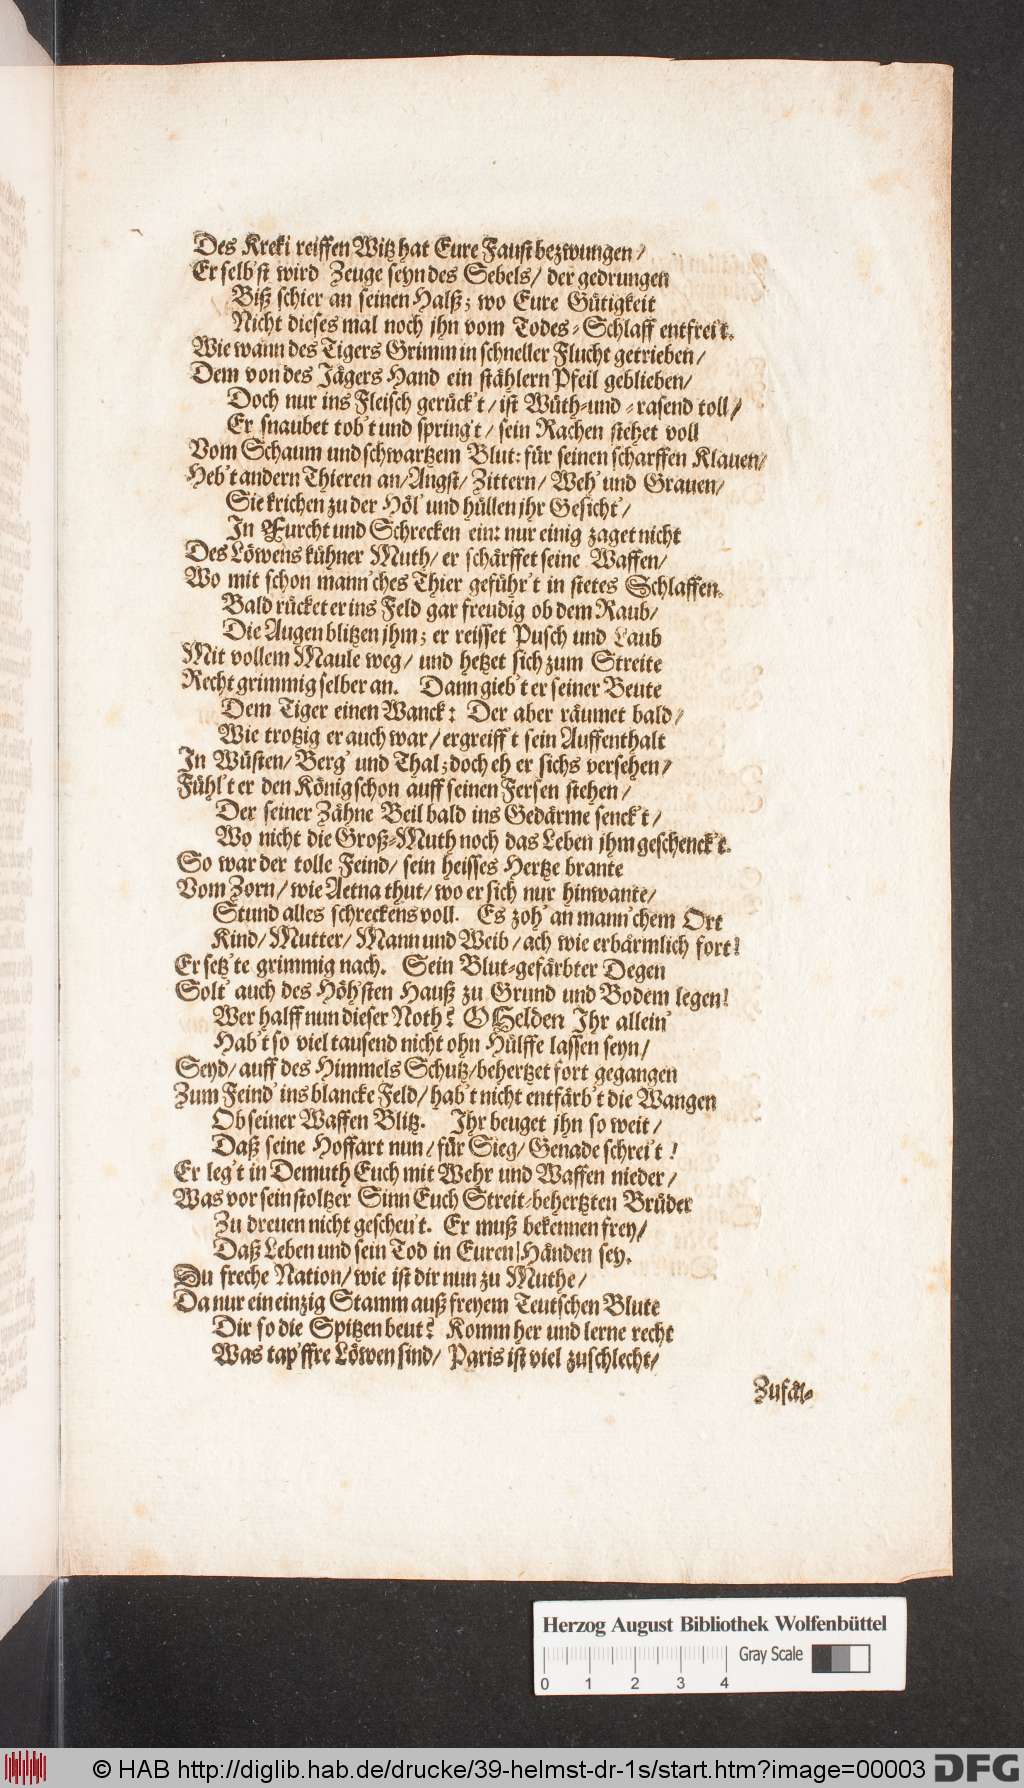 Des Kreki reiffen Witz hat Eure Faust bezwungen/
Er selbst wird Zeuge seyn des Sebels/ der gedrungen
Biß schier an seinen Halß; wo Eure Gütigkeit
Nicht dieses mal noch jhn vom Todes-Schlaff entfrei't.
Wie wann des Tigers Grimm in schneller Flucht getrieben/
Dem von des Jägers Hand ein stählern Pfeil geblieben/
Doch nur ins Fleisch gerück't/ ist Wüth-und-rasend toll/
Er snaubet tob't und spring't/ sein Rachen stehet voll
Vom Schaum und schwartzem Blut: für seinen scharffen Klauen/
Heb't andern Thieren an/ Angst/ Zittern/ Weh' und Grauen/
Sie krichen zu der Höl' und hüllen jhr Gesicht'/
In Furcht und Schrecken ein: nur einig zaget nicht
Des Löwens kühner Muth/ er schärffet seine Waffen/
Wo mit schon mann'ches Thier geführ't in stetes Schlaffen.
Bald rücket er ins Feld gar freudig ob dem Raub/
Die Augen blitzen jhm; er reisset Pusch und Laub
Mit vollem Maule weg/ und hetzet sich zum Streite
Recht grimmig selber an. Dann gieb't er seiner Beute
Dem Tiger einen Wanck: Der aber räumet bald/
Wie trotzig er auch war/ ergreiff't sein Auffenthalt
In Wüsten/ Berg' und Thal; doch eh er sichs versehen/
Fühl't er den König schon auff seinen Fersen stehen/
Der seiner Zähne Beil bald ins Gedärme senck't/
Wo nicht die Groß-Muth noch das Leben jhm geschenck't.
So war der tolle Feind/ sein heisses Hertze brante
Vom Zorn/ wie Aetna thut/ wo er sich nur hinwante/
Stund alles schreckens voll. Es zoh' an mann'chem Ort
Kind/ Mutter/ Mann und Weib/ ach wie erbärmlich fort!
Er setz'te grimmig nach. Sein Blut-gefärbter Degen
Solt' auch des Höh'sten Hauß zu Grund und Bodem legen!
Wer halff nun dieser Noth? O Helden Ihr allein'
Hab't so viel tausend nicht ohn Hülffe lassen seyn/
Seyd/ auff des Himmels Schutz/ behertzet fort gegangen
Zum Feind' ins blancke Feld/ hab't nicht entfärb't die Wangen
Ob seiner Waffen Blitz. Ihr beuget jhn so weit/
Daß seine Hoffart nun/ für Sieg/ Genade schrei't!
Er leg't in Demuth Euch mit Wehr und Waffen nieder/
Was vor sein stoltzer Sinn Euch Streit-behertzten Brüder
Zu dreuen nicht gescheu't. Er muß bekennen frey/
Daß Leben und sein Tod in Euren Händen sey.
Du freche Nation/ wie ist dir nun zu Muthe/
Da nur ein einzig Stamm auß freyem Teutschen Blute
Dir so die Spitzen beut? Komm her und lerne recht
Was tap'ffre Löwen sind/ Paris ist viel zu schlecht/
Zufäl-
Herzog August Bibliothek Wolfenbüttel
Gray Scale
0 1 2 3 4
© HAB http://diglib.hab.de/drucke/39-helmst-dr-1s/start.htm?image=00003
DFG